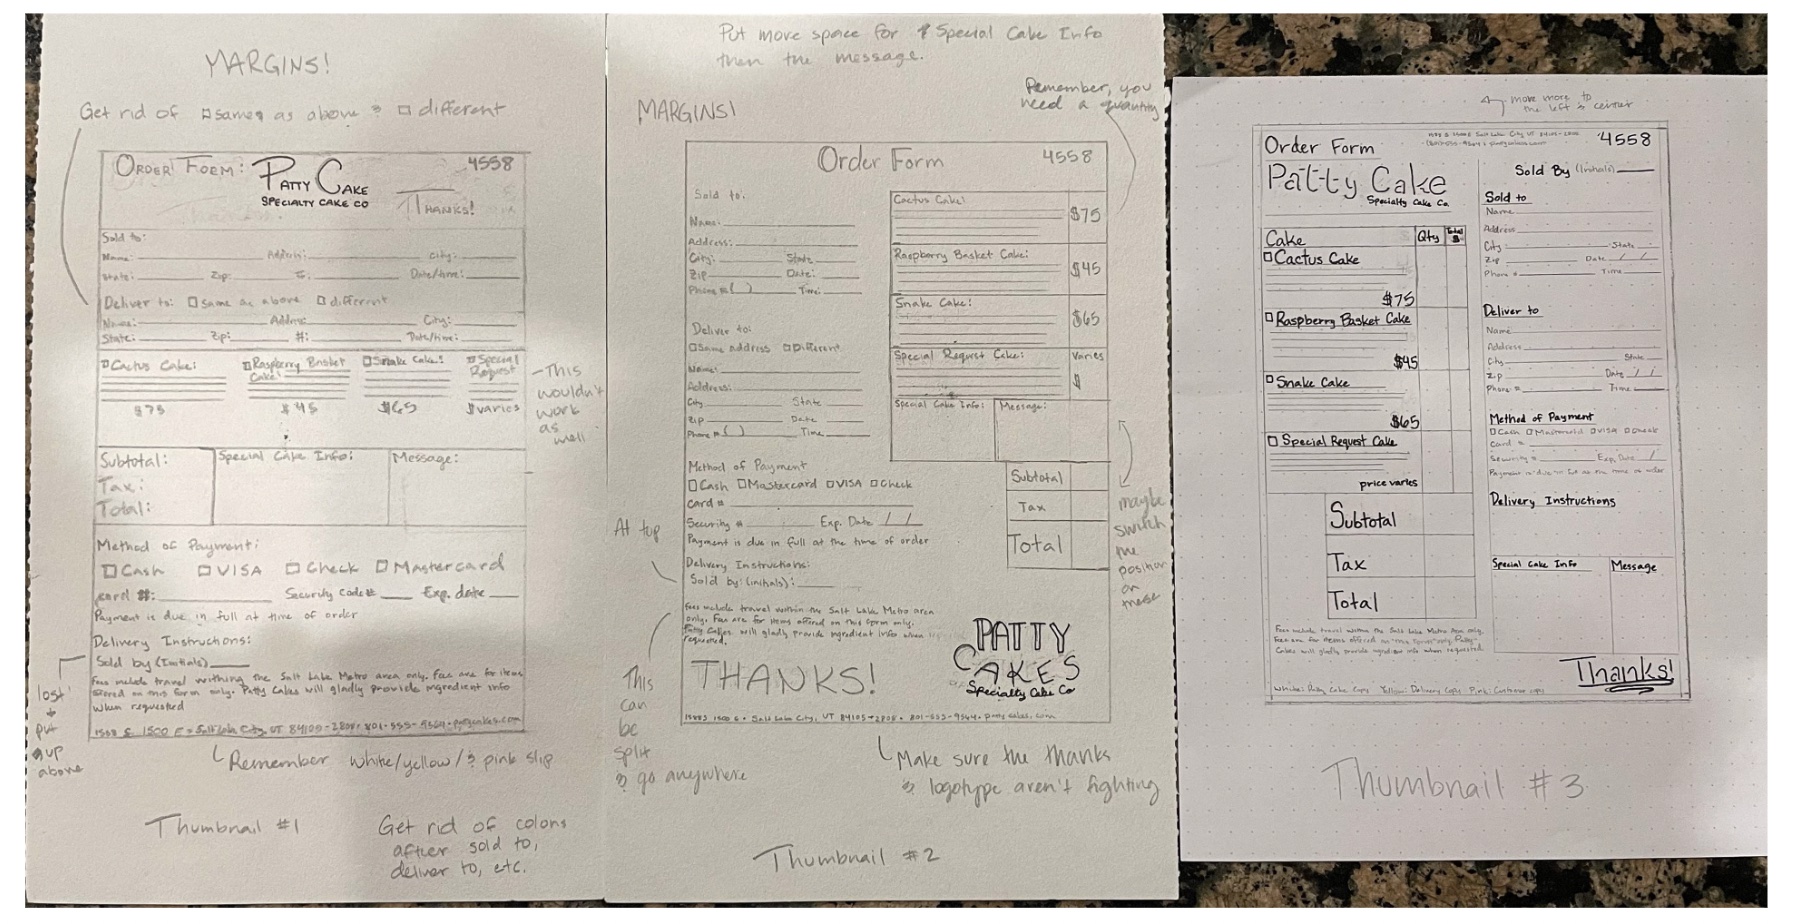 MARGINS!
Get rid of □ same as above & □ different
ORDER FORM:
PATTY CAKE
SPECIALTY CAKE CO
4558
THANKS!
Sold to:
Name: Address: City:
State: Zip: Date/time:
Deliver to: □ same as above □ different
Name: Address: City:
State: Zip: #: Date/time:
□ Cactus Cake: □ Raspberry Basket Cake: □ Snake Cake: □ Special Request
$75 $45 $65 $varies
This wouldn't
work
as
well
Subtotal: Special Cake Info: Message:
Tax:
Total:
Method of Payment:
□ Cash □ VISA □ Check □ Mastercard
card #: Security Code# Exp. date
Payment is due in full at time of order
Delivery Instructions:
Sold by (Initials)
Fees include travel withing the Salt Lake Metro area only. Fees are for items
on this form only. Patty Cakes will gladly provide ingredient info
when requested
lost
put
up
above
Remember white/yellow/& pink slip
Thumbnail #1
Get rid of colons
after sold to,
deliver to, etc.
Put more space for Special Cake Info
then the message.
Remember, you
need a quantity
MARGINS!
Order Form 4558
Sold to:
Name:
Address:
City: State
Zip Date:
Phone #( ) Time:
Deliver to:
□ Same address □ Different
Name:
Address:
City State
Zip Date
Phone #( ) Time
Cactus Cake: $75
Raspberry Basket Cake: $45
Snake Cake: $65
Special Request Cake: Varies
$
Special Cake Info: Message:
Method of Payment
□ Cash □ Mastercard □ VISA □ Check
Card #
Security # Exp. Date / /
Payment is due in full at the time of order
Delivery Instructions:
Sold by: (initials):
Subtotal
Tax
Total
At top
maybe
switch
the
position
on
these
Fees include travel within the Salt Lake Metro area
only. Fees are for items offered on this form only.
Patty Cakes will gladly provide ingredient info when
requested.
THANKS!
PATTY
CAKES
Specialty Cake Co
This
can
be
split
& go anywhere
Make sure the thanks
& logotype aren't fighting
Thumbnail #2
move more to
the left & center
Order Form
4558
Patty Cake
Specialty Cake Co.
Sold By (Initials)
Cake Qty Total $
□ Cactus Cake
$75
□ Raspberry Basket Cake
$45
□ Snake Cake
$65
□ Special Request Cake
price varies
Subtotal
Tax
Total
Sold to
Name
Address
City State
Zip Date / /
Phone # Time
Deliver to
Name
Address
City State
Zip Date / /
Phone # Time
Method of Payment
□ Cash □ Mastercard □ VISA □ Check
Card #
Security # Exp. Date /
Payment is due in full at the time of order
Delivery Instructions
Special Cake Info Message
Fees include travel within the Salt Lake Metro Area only.
Fees are for items offered on this form only. Patty
Cakes will gladly provide ingredient info when requested.
Thanks!
White: Patty Cake Copy Yellow: Delivery Copy Pink: Customer copy
Thumbnail #3